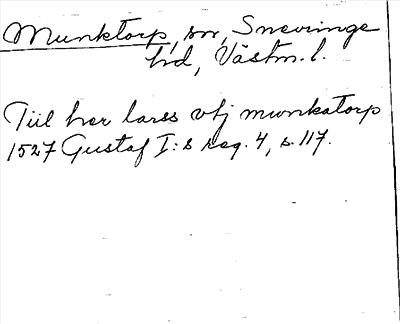 Munktorp, sn, Snevringe
hd, Västm. l.
Till her lares vtj munkatorp
1527 Gustaf I:s reg. 4, s. 117.